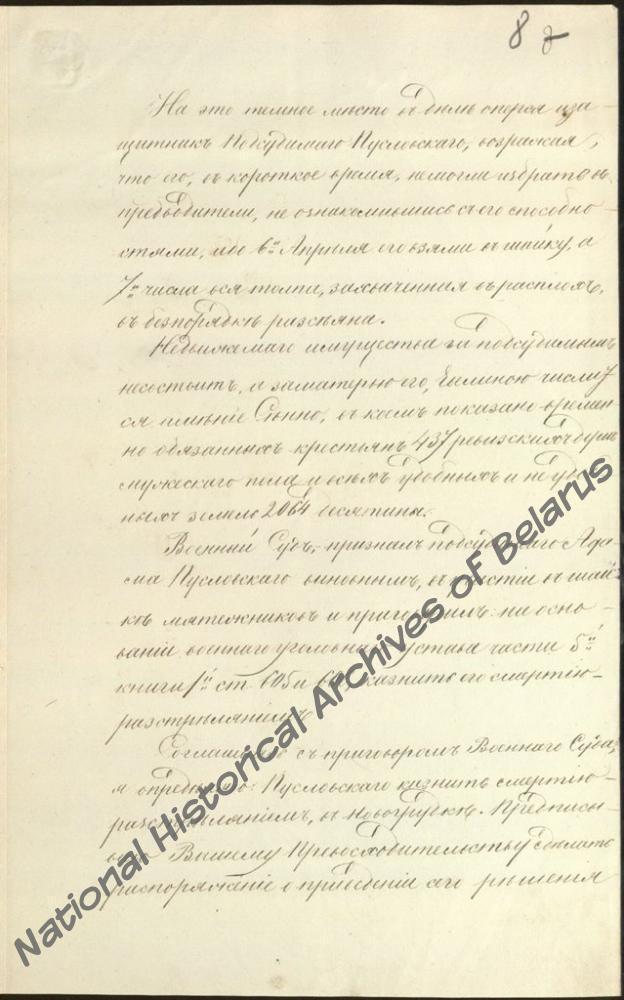 8 8
На это темное место въ дѣлѣ оперся и за-
щитникъ Подсудимаго Пусловскаго, возражая,
что его, въ короткое время, немогли избрать въ
предводители, не ознакомившись съ его способно-
стями, ибо 6го Апрѣля его взяли въ шайку, а
7го числа вся толпа, захваченная въ расплохъ,
въ безпорядкѣ разсѣяна.
Недвижимаго имущества за подсудимымъ
несостоитъ, а заматерью его, числит
ся имѣніе Сѣнно, въ коемъ показано времен
но обязанныхъ крестьянъ 437 ревизскихъ душъ
мужескаго пола и всѣхъ удобныхъ и неудоб
ныхъ земель 2064 десятины.
Военный Судъ, призналъ подсудимаго Ада-
ма Пусловскаго виновнымъ, въ участіи въ шай
кѣ мятежниковъ и приговорилъ: на осно-
ваніи военно уголовнаго устава части 5й
книги 1й ст 605 и казнить его смертію
разстрѣляніемъ.
Соглашаясь съ приговоромъ Военнаго Суда,
я опредѣлилъ: Пусловскаго казнить смертію
разстрѣляніемъ, въ Новогрудкѣ. Предписы-
ваю Вашему Превосходительству сдѣлать
распоряженіе о приведеніи сего рѣшенія
National Historical Archives of Belarus